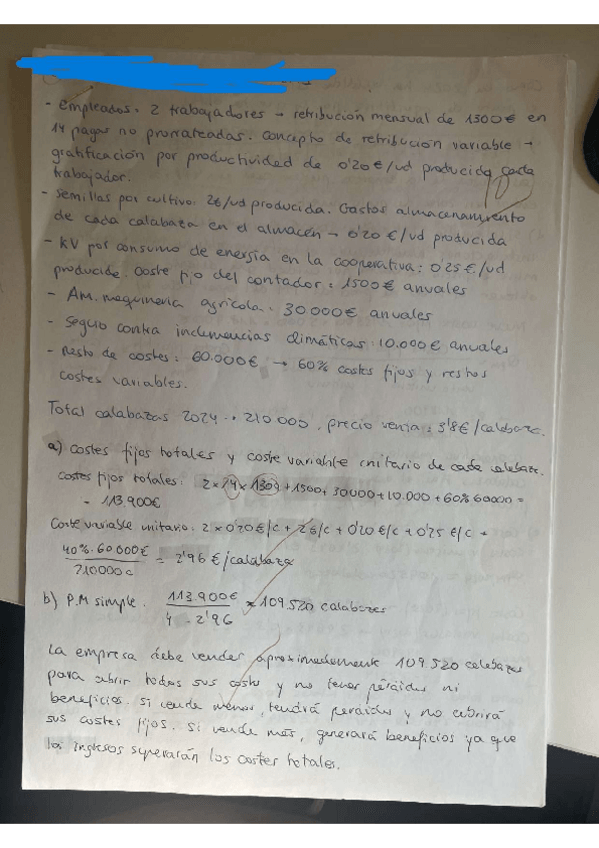 - empleados: 2 trabajadores → retribución mensual de 1300€ en
14 pagas no prorrateadas. Concepto de retribución variable →
gratificación por productividad de 0'20€/ud producida cada
trabajador.
- Semillas por cultivo: 2€/ud producida. Gastos almacenamiento
de cada calabaza en el almacén → 0'20 €/ud producida
- kV por consumo de energía en la cooperativa: 0'25€/ud
producida. Coste fijo del contador: 1500€ anuales
- AM. maquinaria agrícola: 30.000€ anuales
- Seguro contra inclemencias climáticas: 10.000€ anuales
- Resto de costes: 60.000€ → 60% costes fijos y restos
costes variables.
Total calabazas 2024: 210.000. precio venta: 3'8€/calabaza.
a) costes fijos totales y coste variable unitario de cada calabaza.
Costes fijos totales: 2×14×1300+1500+30000+10.000+60% 60000 =
= 113.900€
Coste variable unitario: 2×0'20€/c + 2€/c + 0'20 €/c + 0'25 €/c +
40%·60.000€ / 210000c = 2'96 €/calabaza
b) P.M simple. 113.900€ / 4 - 2'96 = 109.520 calabazas
La empresa debe vender aproximadamente 109.520 calabazas
para cubrir todos sus costes y no tener pérdidas ni
beneficios. Si vende menos, tendrá pérdidas y no cubrirá
sus costes fijos. Si vende más, generará beneficios ya que
los ingresos superarán los costes totales.